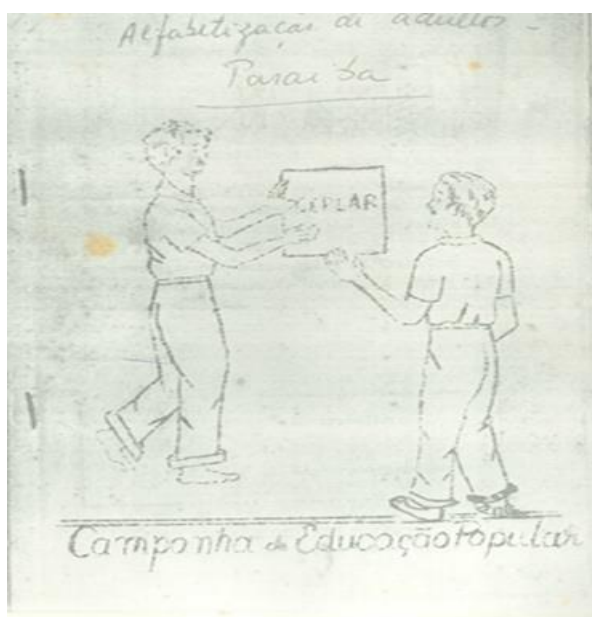 Alfabetização de adultos -
Paraíba
CEPLAR
Campanha de Educação Popular